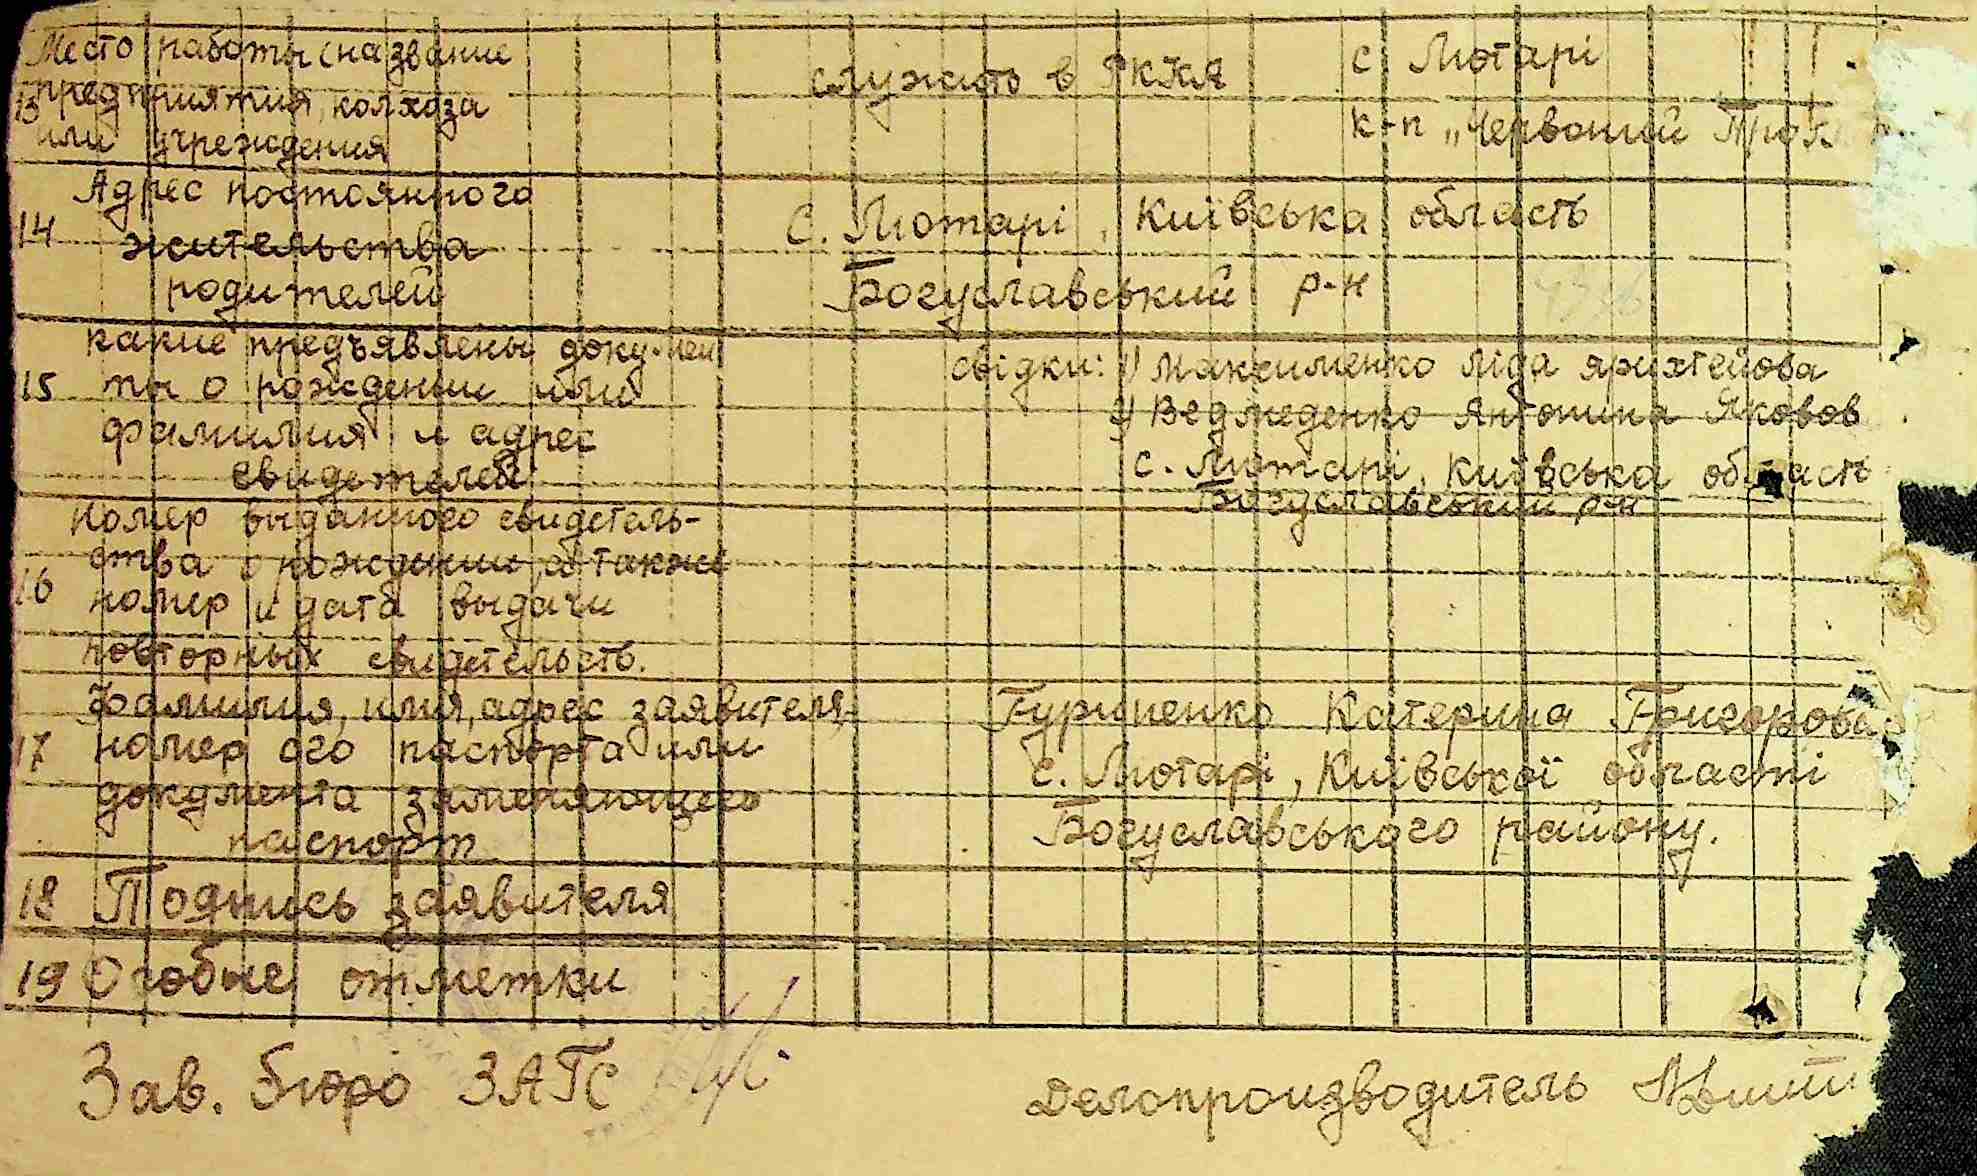 Место работы (название
13 предприятия, колхоза
или учреждения
служить в РККА
с Лютарі
к-п „Червоний
14 Адрес постоянного
жительства
родителей
с. Лютарі, Київська область
Богуславський р-н
15 какие предъявлены докумен
ты о рождении или
фамилия и адрес
свидетелей
свідки: 1) Максименко Ліда
2) Ведмеденко Антонина Яковов
с. Лютарі, Київська область
Богуславський р-н
16 Номер выданного свидетель-
ства о рождении, а также
номер и дата выдачи
повторных свидетельств.
17 Фамилия, имя, адрес заявителя,
номер его паспорта или
документа заменяющего
паспорт
Гуриненко Катерина Григорова
с. Лютарі, Київської області
Богуславського району.
18 Подпись заявителя
19 Особые отметки
Зав. бюро ЗАГС
Делопроизводитель